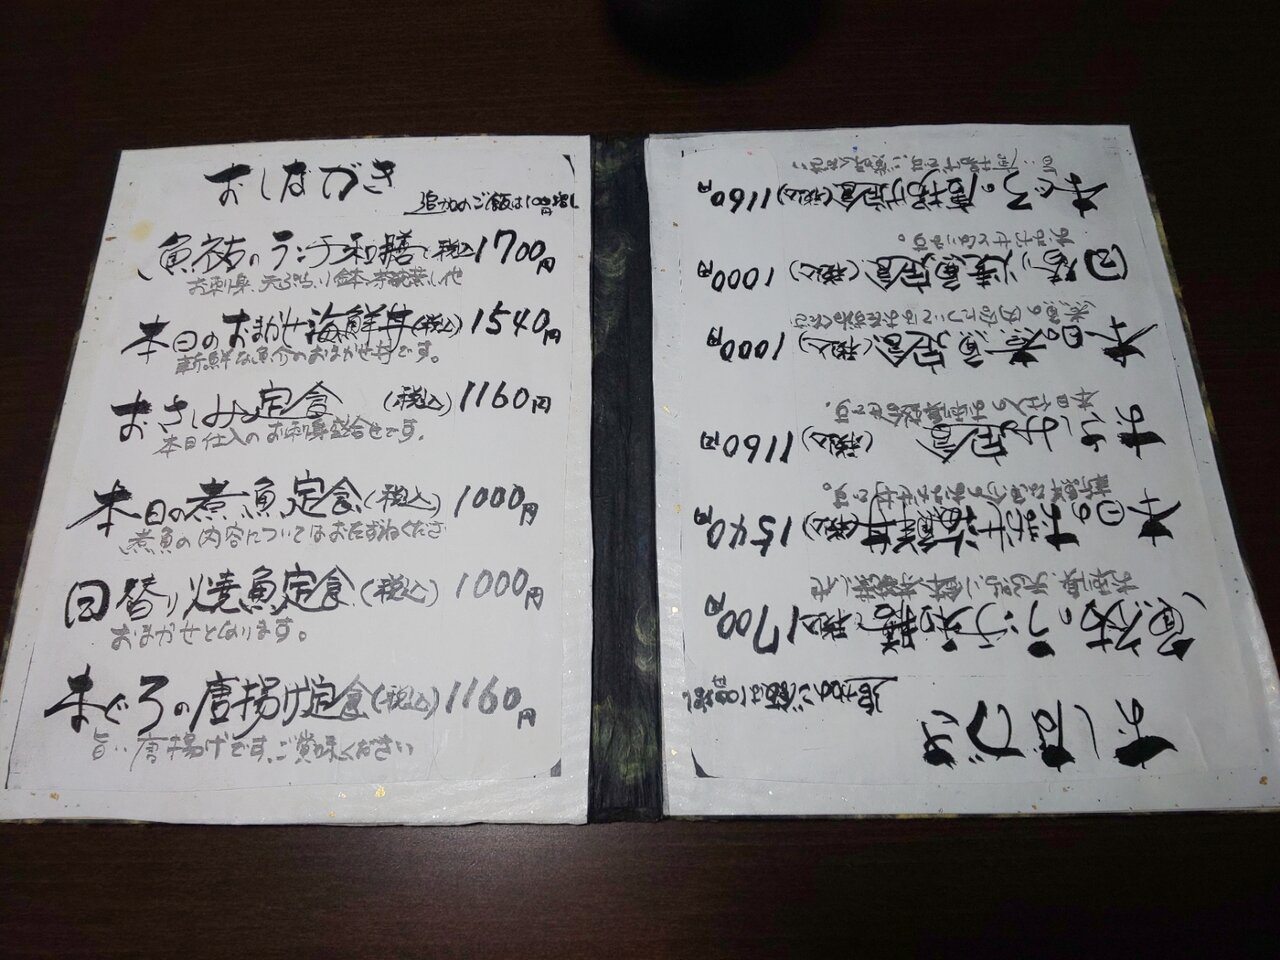 おしながき
追加のご飯は100円増し
魚祐のランチ和膳(税込)1700円
お刺身、天ぷら、小鉢、茶碗蒸し他
本日のおまかせ海鮮丼(税込)1540円
新鮮な魚介のおまかせ丼です。
おさしみ定食 (税込)1160円
本日仕入のお刺身盛合せです。
本日の煮魚定食(税込)1000円
煮魚の内容についてはおたずねくださ
日替り焼魚定食(税込)1000円
おまかせとなります。
まぐろの唐揚げ定食(税込)1160円
旨い唐揚げです、ご賞味ください
おしながき
追加のご飯は100円増し
魚祐のランチ和膳(税込)1700円
お刺身、天ぷら、小鉢、茶碗蒸し他
本日のおまかせ海鮮丼(税込)1540円
新鮮な魚介のおまかせ丼です。
おさしみ定食 (税込)1160円
本日仕入のお刺身盛合せです。
本日の煮魚定食(税込)1000円
煮魚の内容についてはおたずねくださ
日替り焼魚定食(税込)1000円
おまかせとなります。
まぐろの唐揚げ定食(税込)1160円
旨い唐揚げです、ご賞味ください